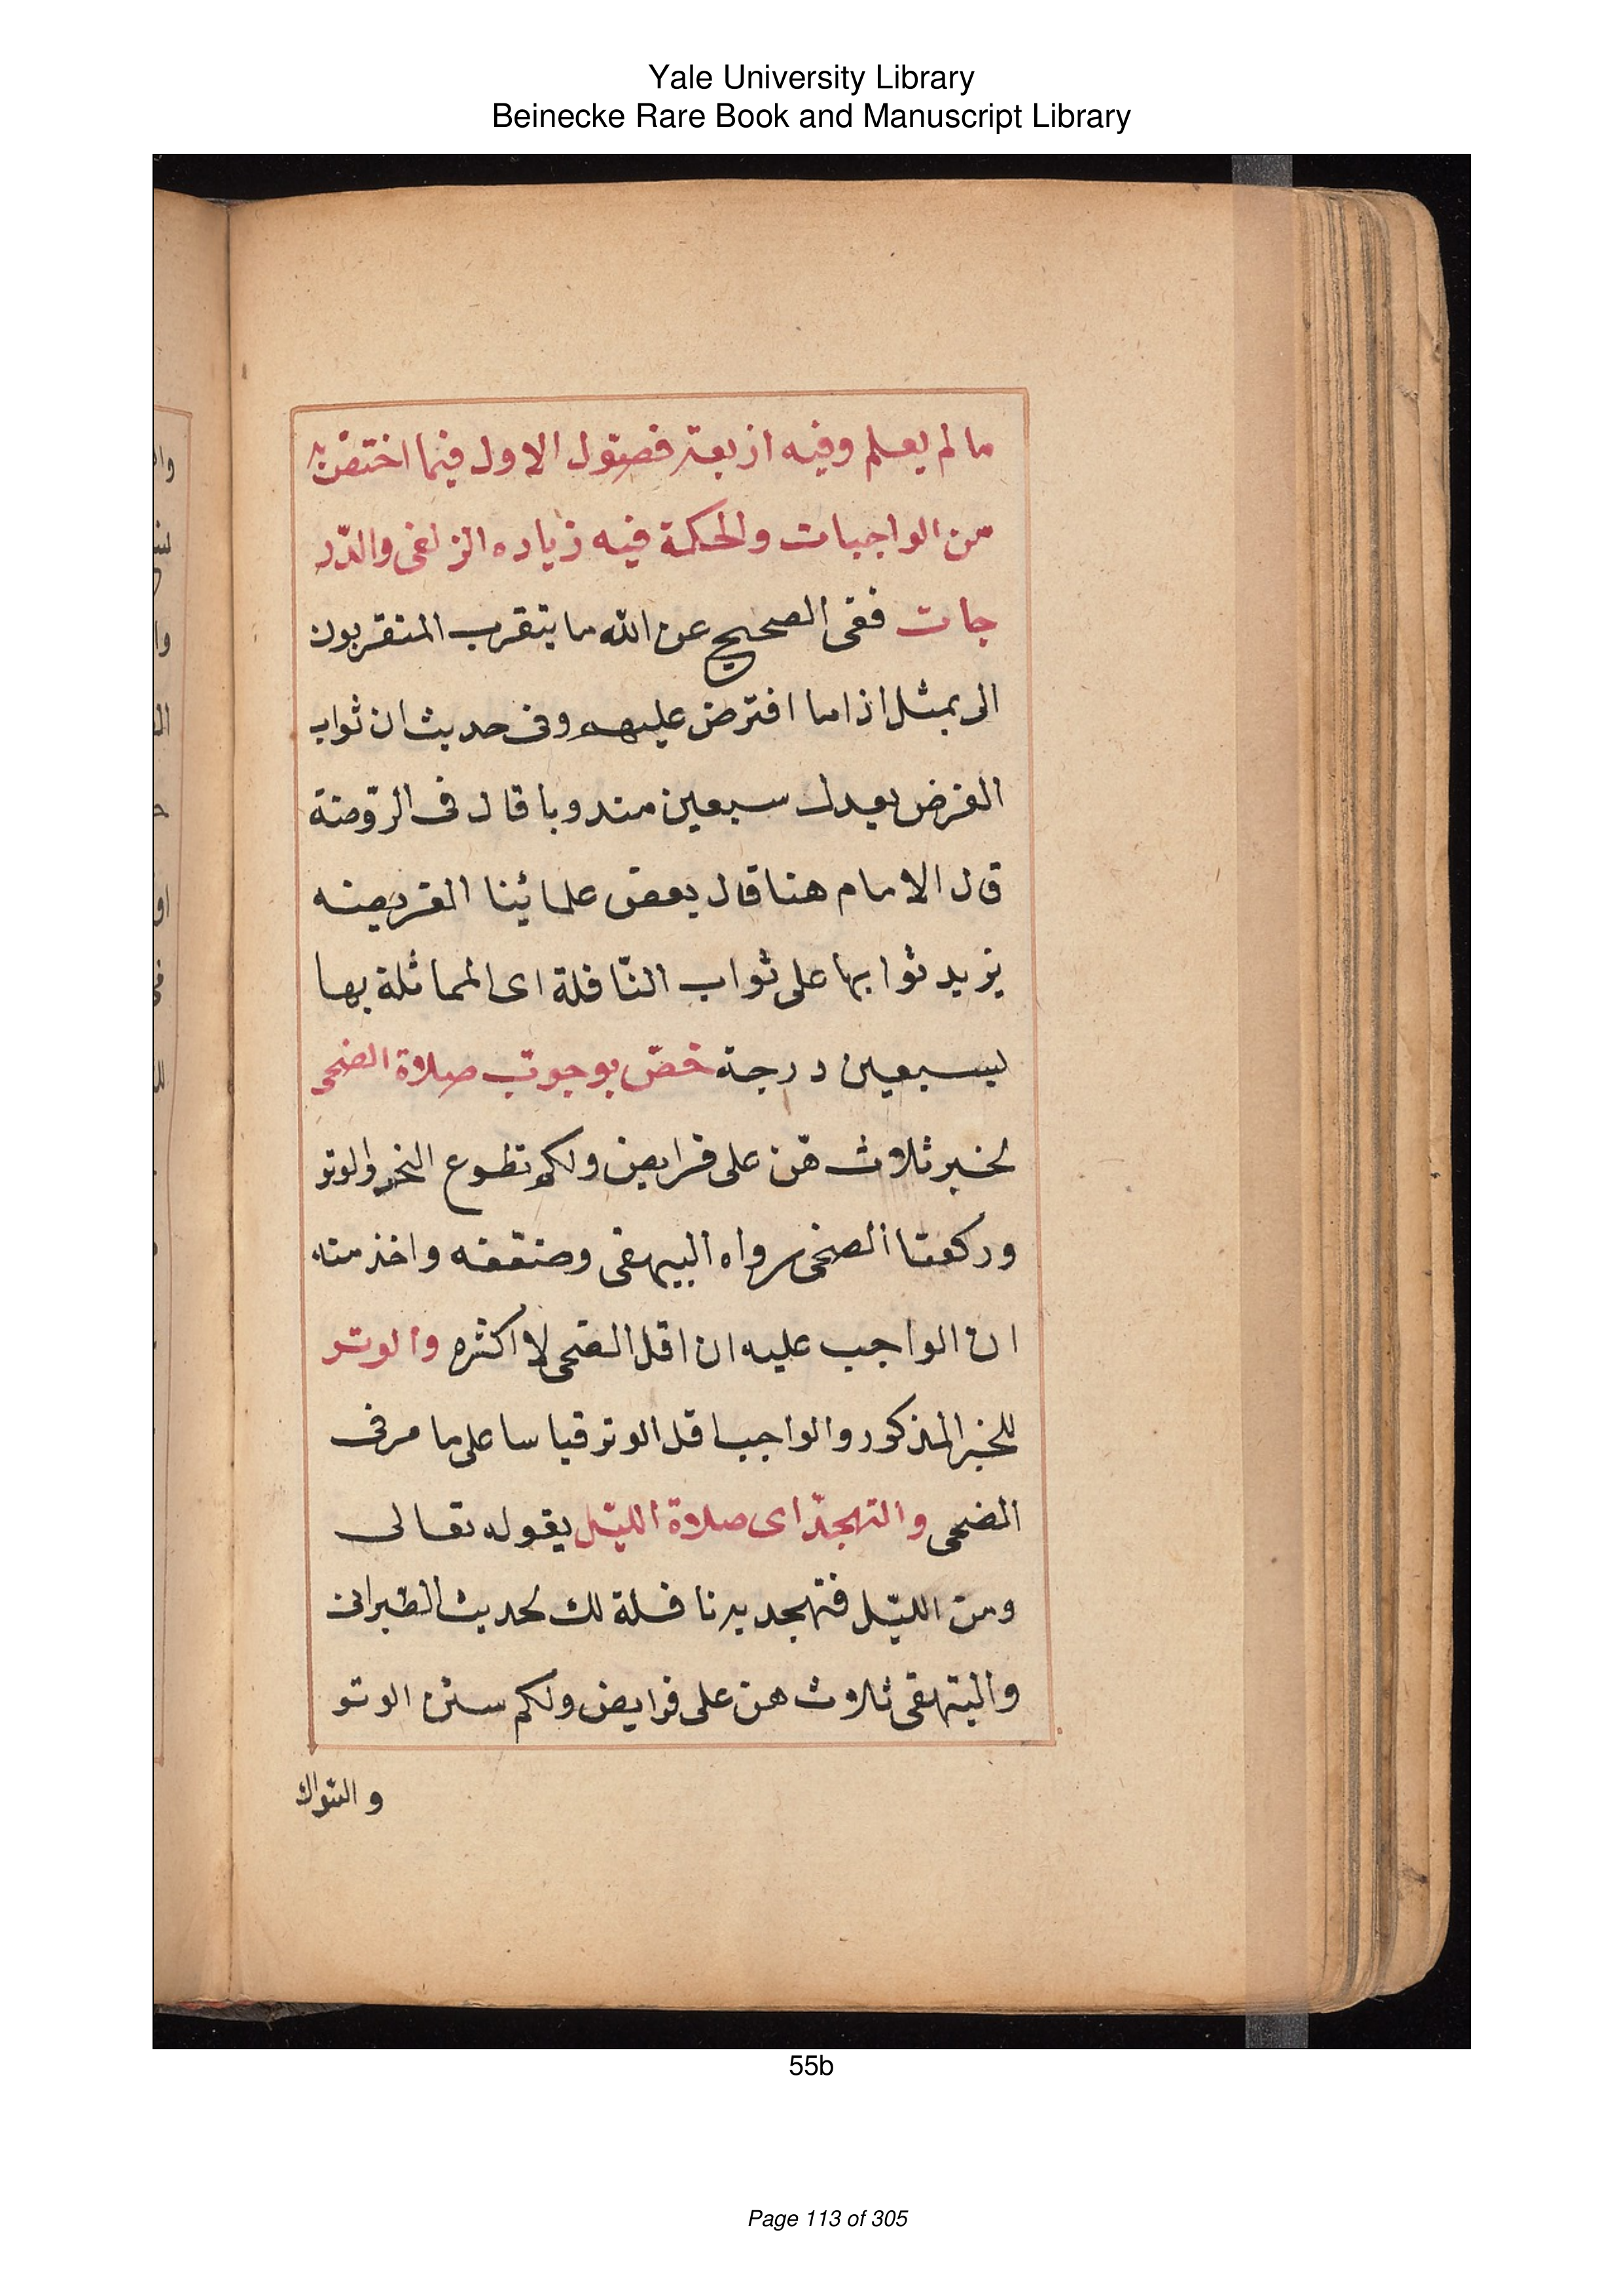 Yale University Library
Beinecke Rare Book and Manuscript Library
ما لم يعلم وفيه اربعة فصول الاول فيما اختص به
من الواجبات والحكمة فيه زياده الزلفى والدّر
جات ففى الصحيح عن الله ما يتقرب المتقربون
الى بمثل اذا ما افترض عليهم وفى حديث ان ثواب
الفرض يعدل سبعين مندوبا قال فى الرّوضة
قال الامام هنا قال بعض علمائنا الفريضه
يزيد ثوابها على ثواب النّافلة اى المماثلة بها
لسبعين درجة خصّ بوجوب صلاة الضحى
لخبر ثلاث هّن على فرايض ولكم تطوع النحر والوتر
وركعتا الضحى رواه البيهقى وضعفه واخذ منه
ان الواجب عليه ان اقل الضحى لا اكثره والوتر
للخبر المذكور والواجب اقل الوتر قياسا على ما مر فى
الضحى والتهجّد اى صلاة الليّل بقوله تعالى
ومن الليّل فتهجد به نافلة لك لحديث الطبرانى
والبيهقى ثلاث هن على فرايض ولكم سنن الوتر
و السّواك
55b
Page 113 of 305